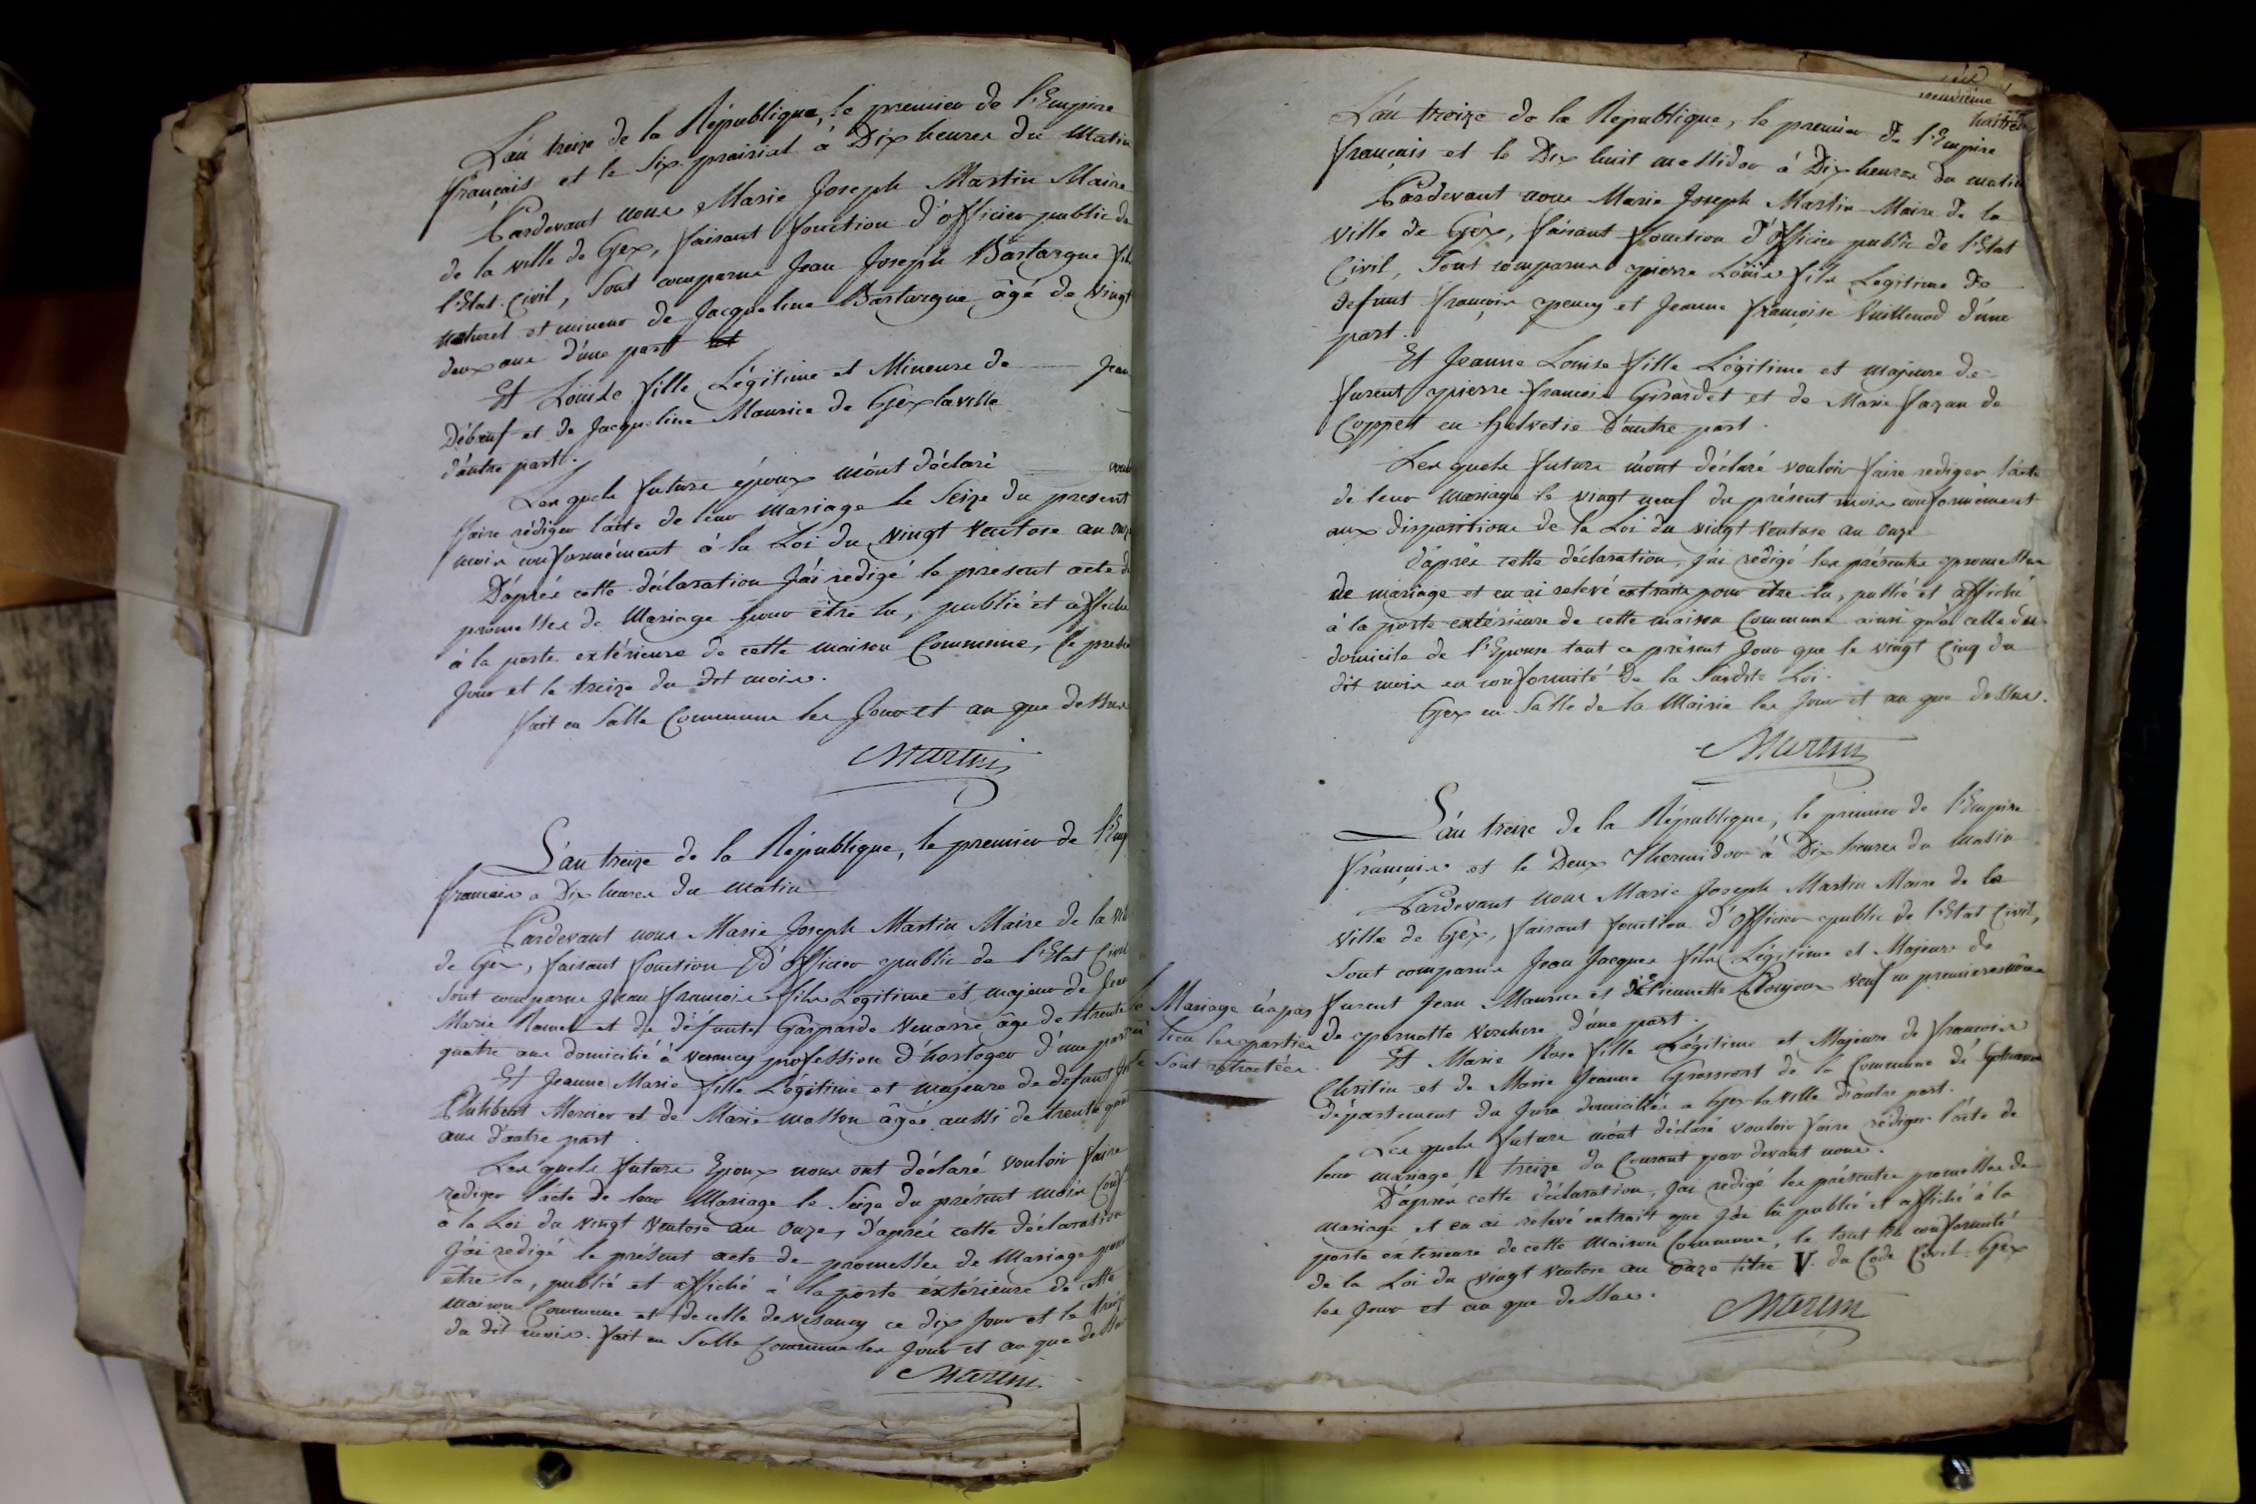 L'an treize de la République, le premier de l'Empire
français et le Six prairial à Dix heures du Matin
Pardevant nous Marie Joseph Martin Maire
de la ville de Gex, faisant fonction d'officier public de
l'Etat Civil, Sont comparus Jean Joseph Bastargue fils
naturel et mineur de Jacqueline Bastargue, âgé de vingt
deux ans d'une part
Et Louise fille Légitime et Mineure de Jean
Débœuf et de Jacqueline Maurice de Gex la ville
d'autre part.
Les quels futurs époux m'ont déclaré
faire rédiger l'acte de leur mariage le Seize du présent
mois conformément à la Loi du vingt Ventose an
D'après cette déclaration J'ai rédigé le présent acte de
promesses de Mariage pour être lu, publié et affiché
à la porte extérieure de cette maison Commune, Ce
Jour et le treize du dit mois.
fait en Salle Commune les Jour et an que dessus
Martin
L'an treize de la République, le premier de l'Emp
français a Dix heures du matin
Pardevant nous Marie Joseph Martin Maire de la
de Gex, faisant fonction D'officier public de l'Etat Civil
Sont comparus Jean françois fils Légitime et majeur de
Marie et de défunte Gasparde âgé de trente
quatre ans domicilié à profession d'horloger d'une part
Et Jeanne Marie fille Légitime et majeure de défunt
Philibert Mercier et de Marie Masson âgée aussi de trente
ans d'autre part
Les quels futurs Epoux nous ont déclaré vouloir faire
rediger l'acte de leur Mariage le Seize du présent mois
à la Loi du vingt Ventose an Onze, D'après cette déclaration
J'ai redigé le présent acte de promesses de Mariage pour
être lu, publié et affiché à la porte extérieure de cette
maison Commune et de celle de Vesancy ce dix Jour et le treize
du dit mois. fait en Salle Commune les Jour et an que dessus
Martin
L'an treize de la République, le premier de l'Empire
français et le Dix huit messidor à Dix heures du matin
Pardevant nous Marie Joseph Martin Maire de la
ville de Gex, faisant fonction d'Officier public de l'Etat
Civil, Sont comparus pierre Louis fils Légitime de
defunt françois et Jeanne françoise Vuillerod d'une
part.
Et Jeanne Louise fille Légitime et majeure de
furent pierre françois Girardet et de Marie fazan de
Coppet en helvetie D'autre part.
Les quels futurs m'ont déclaré vouloir faire rediger l'acte
de leur mariage le vingt neuf du présent mois conformément
aux dispositions de la Loi du vingt Ventose an Onze
d'après cette déclaration, j'ai rédigé les présentes promesses
de mariage et en ai relevé extraits pour être lu, publié et affiché
à la porte extérieure de cette maison Commune ainsi qu'à celle du
domicile de l'Epouse tant ce présent Jour que le vingt Cinq du
dit mois en conformité De la Susdite Loi.
Gex en Salle de la Mairie les Jour et an que dessus.
Martin
L'an treize de la République, le premier de l'Empire
français et le Deux Thermidor à Dix heures du matin
Pardevant nous Marie Joseph Martin Maire de la
Ville de Gex, faisant fonction d'Officier public de l'Etat Civil,
Sont comparus Jean Jacques fils Légitime et Majeur de
furent Jean Maurice et d'Etiennette veuf en premieres noces
de pernette Verchere d'une part.
Et Marie Rose fille Légitime et Majeure de françois
et de Marie Jeanne de la Commune de
département du Jura domiciliée a Gex la ville d'autre part.
Les quels futurs m'ont déclaré vouloir faire rédiger l'acte de
leur mariage le treize du Courant par devant nous.
D'après cette déclaration, J'ai rédigé les présentes promesses de
mariage et en ai relevé extrait que J'ai lu publié et affiché à la
porte extérieure de cette Maison Commune, le tout en conformité
de la Loi du vingt Ventose an onze titre V. du Code Civil. Gex
les Jour et an que dessus.
Martin
Mariage n'a pas
lieu les parties
Sont rétractées.